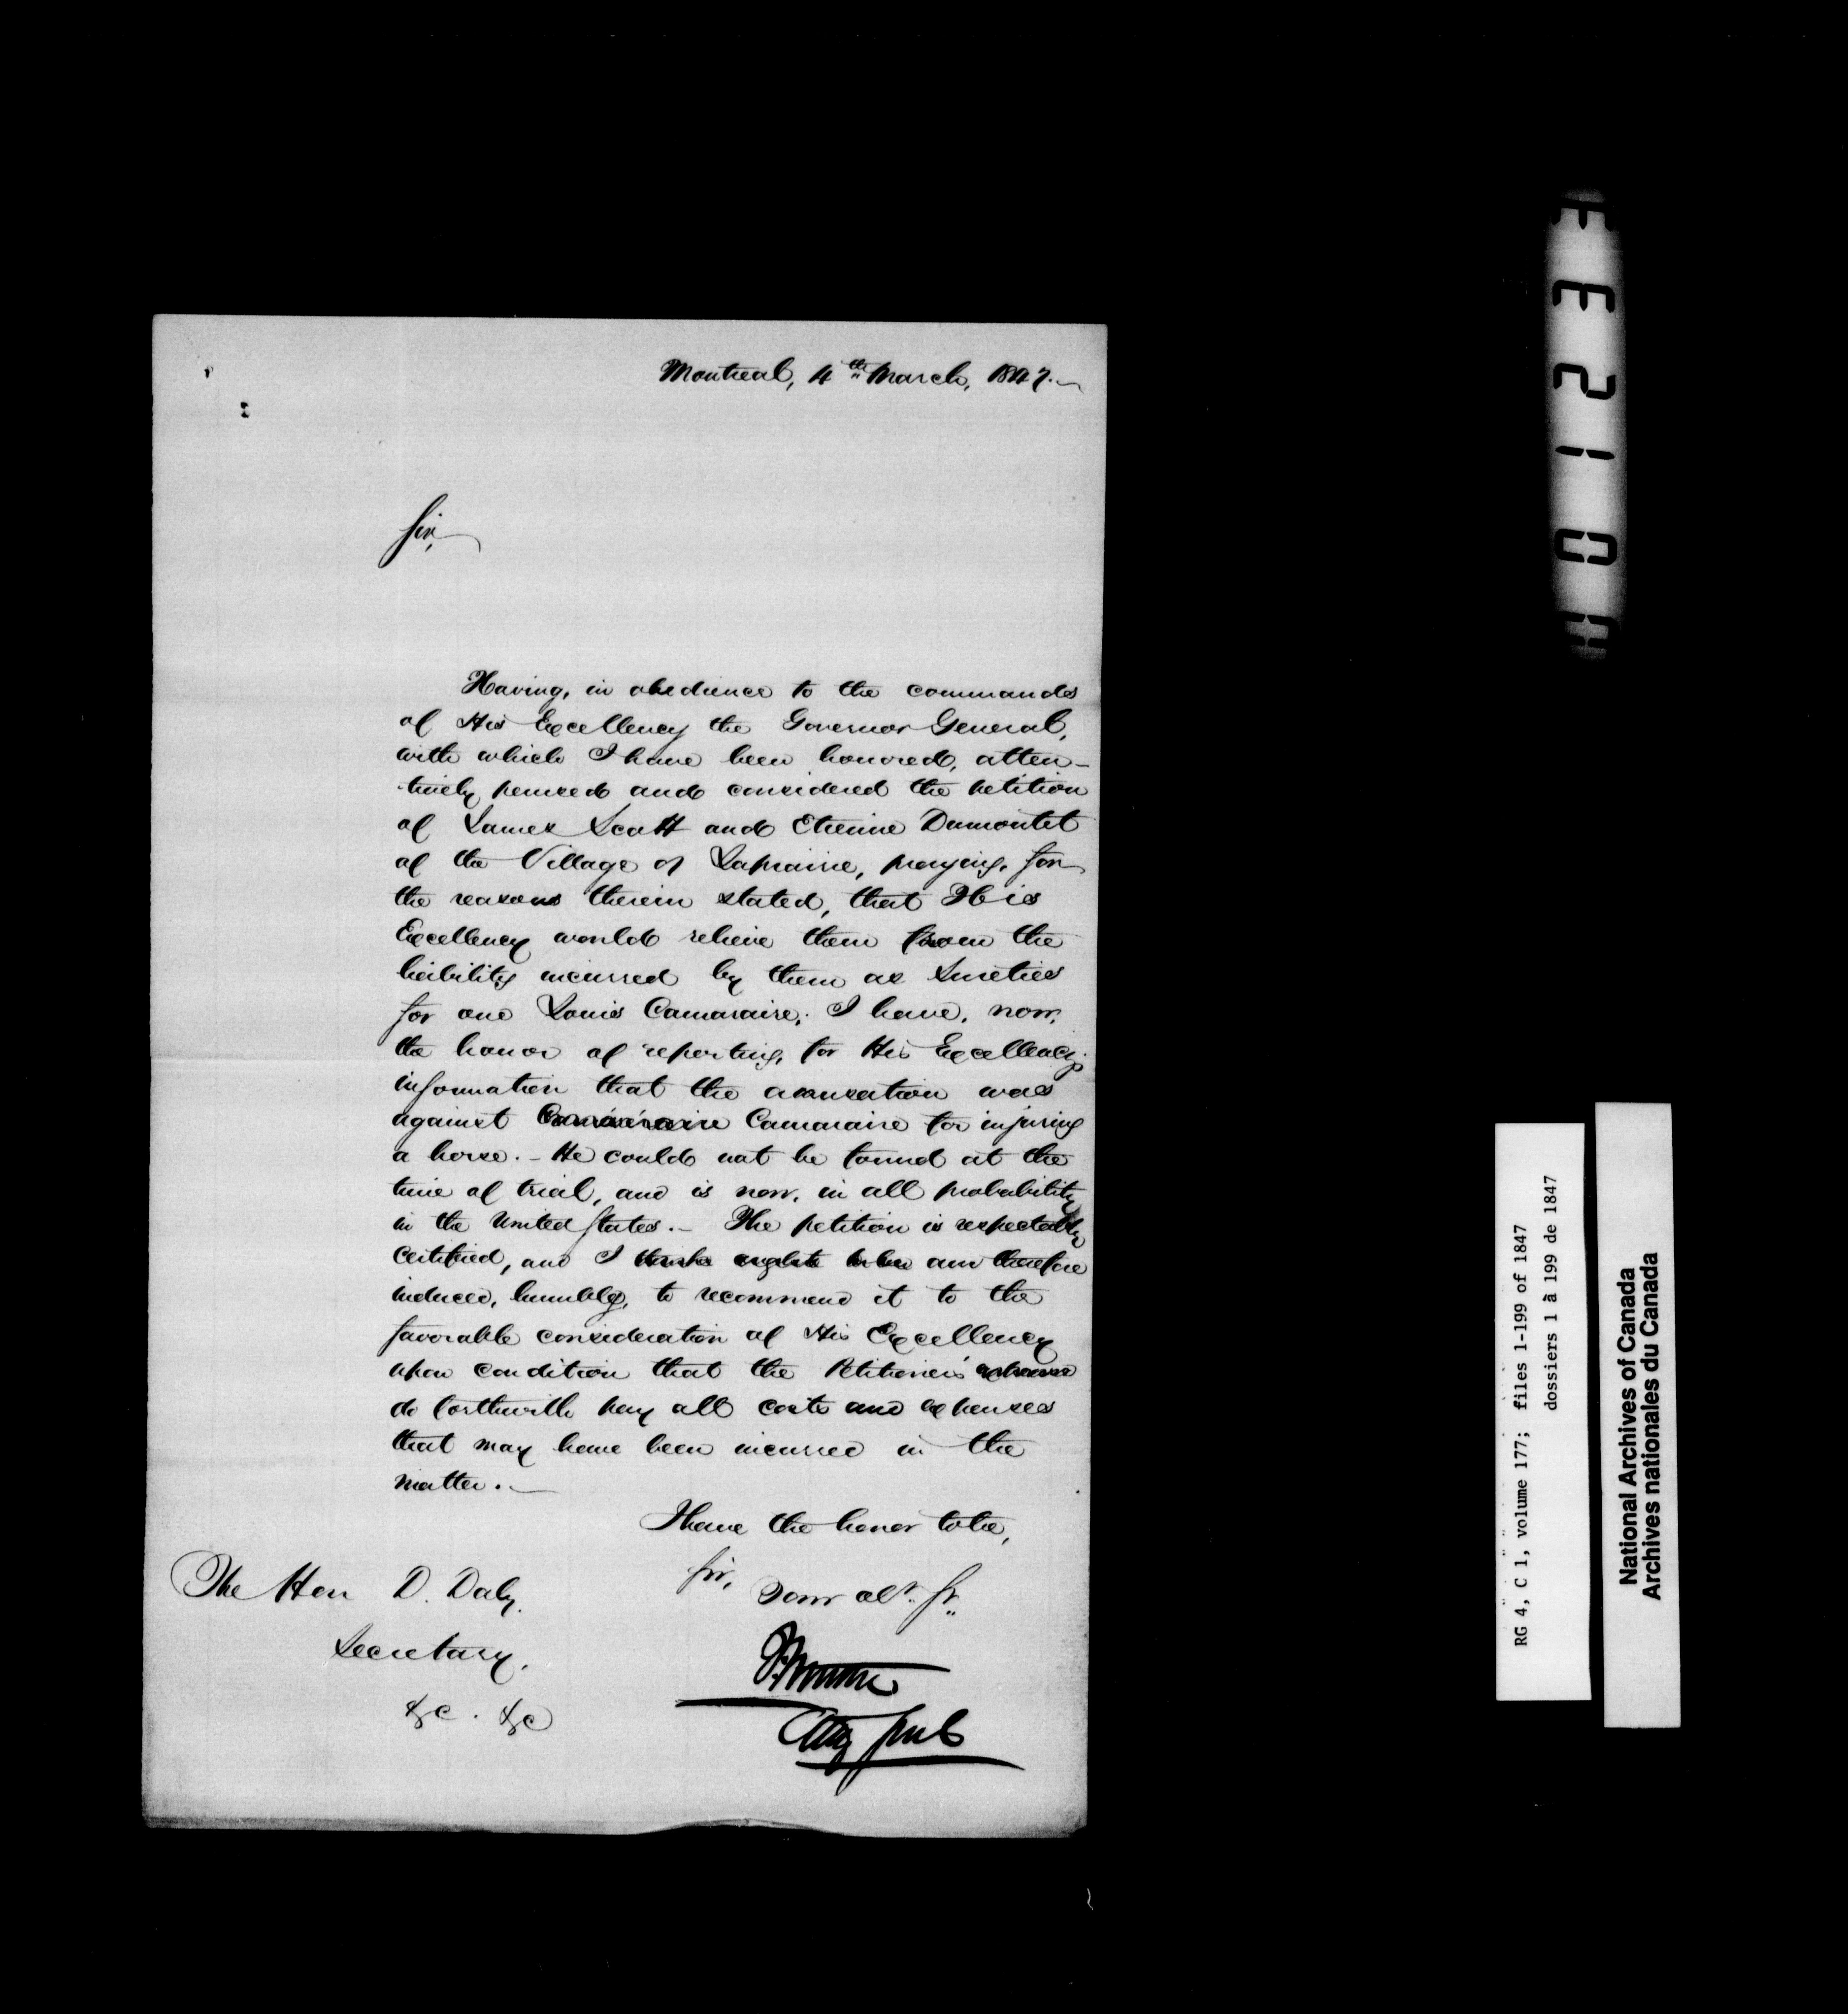 Montreal, 4th March, 1847.
Sir,
Having, in obedience to the commands
of His Excellency the Governor General,
with which I have been honored, atten-
-tively perused and considered the petition
of James Scott and Etienne Dumontet
of the Village of Laprairie, praying, for
the reasons therein stated, that His
Excellency would relieve them from the
liability incurred by them as Sureties
for one Louis Camaraire, I have, now,
the honor of reporting, for His Excellency's
information that the accusation was
against Camaraire for injuring
a horse. - He could not be found at the
time of trial, and is now, in all probability
in the United States. - The petition is respectably
certified, and I am therefore
induced, humbly, to recommend it to the
favorable consideration of His Excellency
upon condition that the Petitioners
do forthwith pay all costs and expenses
that may have been incurred in the
matter. -
I have the honor to be,
Sir,
Your obt. St.
The Hon D. Daly.
Secretary.
&c. &c
Atty Genl
RG 4, C 1, volume 177; files 1-199 of 1847
dossiers 1 à 199 de 1847
National Archives of Canada
Archives nationales du Canada